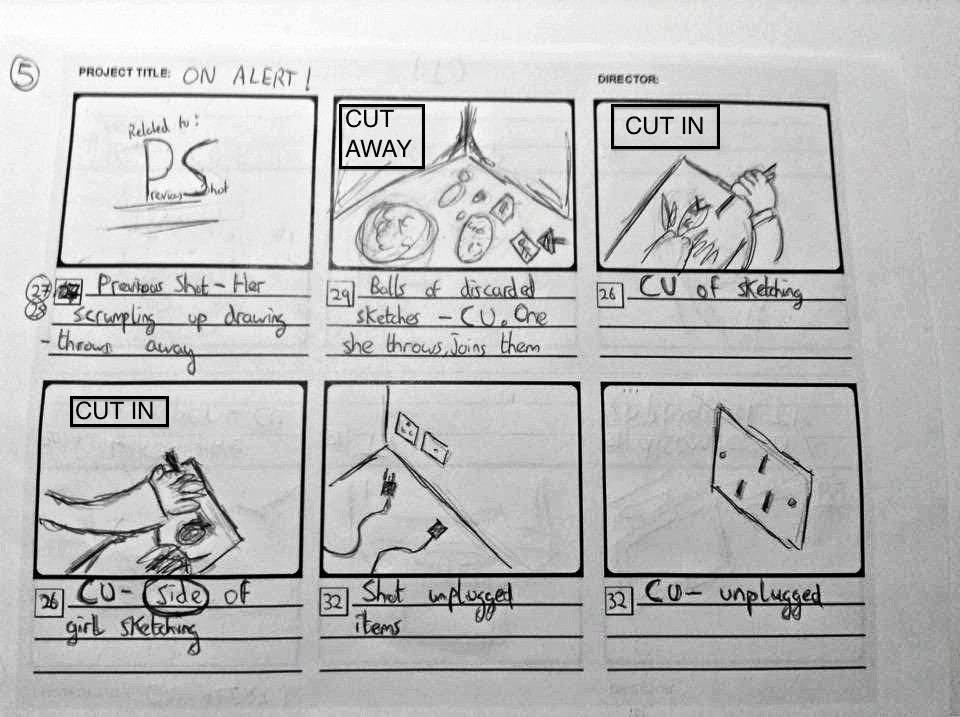 5
PROJECT TITLE: ON ALERT!
DIRECTOR:
Related to:
PS
Previous Shot
27
28
Previous Shot - Her
scrumpling up drawing
- throws away
CUT
AWAY
29
Balls of discarded
sketches - CU. One
she throws, joins them
CUT IN
26
CU of sketching
CUT IN
26
CU- side of
girl sketching
32
Shot unplugged
items
32
CU- unplugged